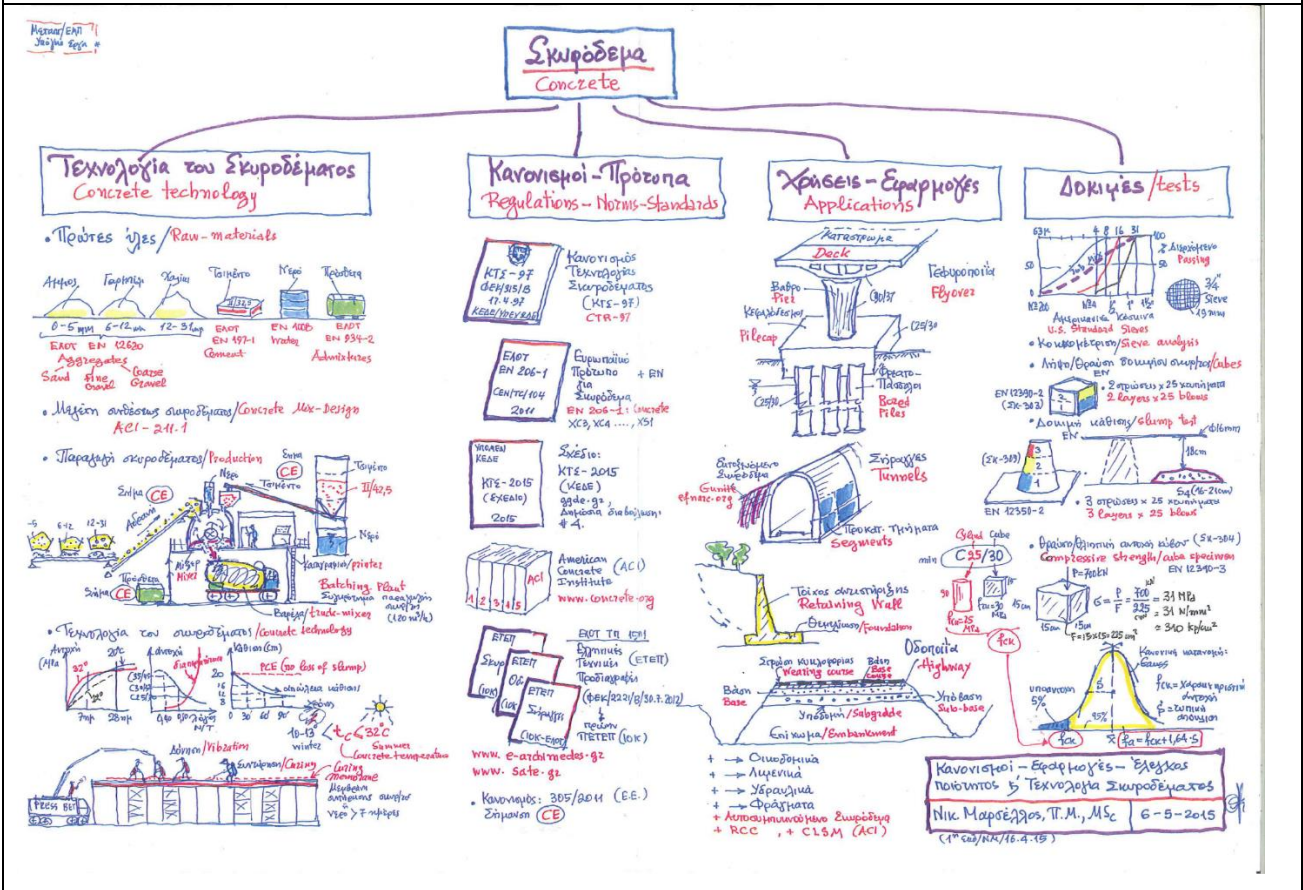 Σκυρόδεμα
Concrete
Τεχνολογία του Σκυροδέματος
Concrete technology
• Πρώτες ύλες / Raw-materials
Άμμος Γαρμπίλι Χαλίκι Τσιμέντο Νερό Πρόσθετα
II/32,5
0-5 mm 6-12 mm 12-31 mm
ΕΛΟΤ EN 12620
ΕΛΟΤ EN 197-1 Cement
EN 1008 Water
ΕΛΟΤ EN 934-2 Admixtures
Aggregates
Sand Fine Gravel Coarse Gravel
• Μελέτη συνθέσεως σκυροδέματος/Concrete Mix-Design
ACI-211.1
• Παραγωγή σκυροδέματος/Production
Σήμα CE
Νερό
Τσιμέντο
Σήμα CE
Τσιμέντο
II/42,5
Αδρανή
6-12 12-31
Νερό
Μίξερ
Mixer
Καταγραφικό/printer
Σήμα CE
Πρόσθετα
Batching Plant
Συγκρότημα παραγωγής σκυροδ.
(120 m³/h)
Βαρέλα/truck-mixer
• Τεχνολογία του σκυροδέματος/Concrete technology
Αντοχή (MPa)
32°
20°C
7ημ 28ημ
αντοχή
C35/45
C30/37
C25/30
διαπερατότητα
λόγος N/T
κάθιση (cm)
20
16
12
8
PCE (no loss of slump)
απώλεια κάθισης
0 30' 60' 90'
10-13°
winter
tc ≤ 32°C
Summer
Concrete temperature
Δόνηση/Vibration
Συντήρηση/Curing
Curing membrane
Μεμβράνη συντήρησης σκυροδ.
ή
νερό > 7 ημέρες
PRESS BET
Κανονισμοί-Πρότυπα
Regulations-Norms-Standards
ΚΤΣ-97
ΦΕΚ/315/Β
17.4.97
ΚΕΔΕ/ΥΠΕΧΩΔΕ
Κανονισμός
Τεχνολογίας
Σκυροδέματος
(ΚΤΣ-97)
CTR-97
ΕΛΟΤ
EN 206-1
CEN/TC/104
2011
Ευρωπαϊκό
Πρότυπο + EN
για
Σκυρόδεμα
EN 206-1: Concrete
XC3, XC4 ...., XS1
ΥΠΟΜΕΔΙ
ΚΕΔΕ
ΚΤΣ-2015
(ΣΧΕΔΙΟ)
2015
Σχέδιο:
ΚΤΣ-2015
(ΚΕΔΕ)
ggde.gr
Δημόσια διαβούλευση:
#4.
ACI
1 2 3 4 5
American
Concrete (ACI)
Institute
www.concrete.org
ΕΤΕΠ
Σκυρ
(10Κ)
ΕΤΕΠ
Οδ
(10Κ
ΕΤΕΠ
Σήραγγες
(10Κ-ΕΛΟΤ)
ΕΛΟΤ ΤΠ 1501
Ελληνικές
Τεχνικές (ΕΤΕΠ)
Προδιαγραφές
(ΦΕΚ/2221/Β/30.7.2012)
πρώην
ΠΕΤΕΠ (10Κ)
www.e-archimedes.gr
www.sate.gr
• Κανονισμός: 305/2011 (Ε.Ε.)
Σήμανση CE
Χρήσεις-Εφαρμογές
Applications
Κατάστρωμα
Deck
Γεφυροποιία
Flyover
Βάθρο
Pier
C30/37
Κεφαλόδεσμος
Pilecap
C25/30
C25/30
Φρεατο-
Πάσσαλοι
Bored
Piles
Εκτοξευόμενο
Σκυρόδεμα
Gunite
efnarc.org
Σήραγγες
Tunnels
Προκατ. Τμήματα
Segments
Τοίχος αντιστήριξης
Retaining Wall
Θεμελίωση/Foundation
Οδοποιία
Highway
Στρώση κυκλοφορίας
Wearing course
Βάση
Base course
Βάση
Base
Υπόβαση
Sub-base
Υποδομή/Subgrade
Επίχωμα/Embankment
+ → Οικοδομικά
+ → Λιμενικά
+ → Υδραυλικά
+ → Φράγματα
+ Αυτοσυμπυκνούμενο Σκυρόδεμα
+ RCC , + CLSM (ACI)
Δοκιμές/tests
63μ 4 8 16 31
100
50
50
% Διερχόμενο
Passing
3/4"
Sieve
19mm
Αμερικανικά Κόσκινα
U.S. Standard Sieves
• Κοκκομέτρηση/Sieve analysis
• Λήψη/Θραύση δοκιμίων σκυρ/τος/Cubes
EN
EN 12390-2
(ΣΚ-303)
• 2 στρώσεις x 25 κτυπήματα
2 layers x 25 blows
• Δοκιμή κάθισης/slump test
EN
Φ16mm
(ΣΚ-309)
3
2
1
18cm
S4 (16-21cm)
EN 12350-2
• 3 στρώσεις x 25 κτυπήματα
3 layers x 25 blows
Cylind Cube
min C25/30
30
15
15cm
fcu=30 MPa
fck=25 MPa
fck
• Θραύση/Θλιπτική αντοχή κύβου (ΣΚ-304)
Compressive strength/cube specimen
EN 12390-3
P=700kN
15cm 15cm
F=15x15=225cm²
σ = P/F = 700/225 = 31 MPa
= 31 N/mm²
= 310 kp/cm²
Κανονική κατανομή:
Gauss
υποαντοχή
5%
95%
S
fck = χαρακτηριστική αντοχή
S = τυπική απόκλιση
fck
x̄
fa = fck+1,64·S
Κανονισμοί-Εφαρμογές-Έλεγχος
ποιότητος & Τεχνολογία Σκυροδέματος
Νικ. Μαρσέλλος, Π.Μ., MSc 6-5-2015
(1η εκδ/ΝΜ/16.4.15)